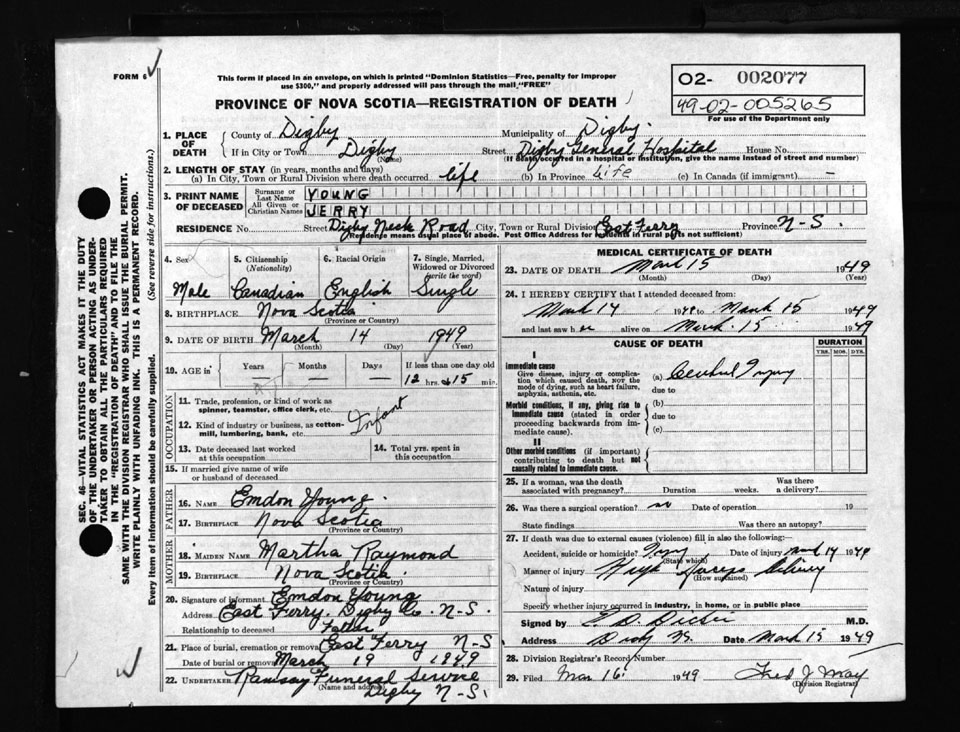 FORM 6
This form if placed in an envelope, on which is printed "Dominion Statistics—Free, penalty for improper
use $300," and properly addressed will pass through the mail "FREE"
PROVINCE OF NOVA SCOTIA—REGISTRATION OF DEATH
02- 002077
49-02-005265
For use of the Department only
SEC. 46—VITAL STATISTICS ACT MAKES IT THE DUTY
OF THE UNDERTAKER OR PERSON ACTING AS UNDER-
TAKER TO OBTAIN ALL THE PARTICULARS REQUIRED
IN THE "REGISTRATION OF DEATH" AND TO FILE THE
SAME WITH THE DIVISION REGISTRAR WHO SHALL ISSUE THE BURIAL PERMIT.
WRITE PLAINLY WITH UNFADING INK. THIS IS A PERMANENT RECORD.
Every item of information should be carefully supplied. (See reverse side for instructions.)
1. PLACE OF DEATH
County of Digby Municipality of Digby.
If in City or Town Digby Street Digby General Hospital House No.
(Name) (If death occurred in a hospital or institution, give the name instead of street and number)
2. LENGTH OF STAY (in years, months and days)
(a) In City, Town or Rural Division where death occurred life (b) In Province Life (c) In Canada (if immigrant) —
3. PRINT NAME OF DECEASED
Surname or Last Name YOUNG
All Given or Christian Names JERRY
RESIDENCE No. Street Digby Neck Road City, Town or Rural Division East Ferry Province N-S.
(Residence means usual place of abode. Post Office Address for residents in rural parts not sufficient)
4. Sex 5. Citizenship (Nationality) 6. Racial Origin 7. Single, Married, Widowed or Divorced (write the word)
Male Canadian English Single
8. BIRTHPLACE Nova Scotia
(Province or Country)
9. DATE OF BIRTH March 14 1949
(Month) (Day) (Year)
10. AGE in Years Months Days If less than one day old
— — 12 hrs. 15 min.
OCCUPATION
11. Trade, profession, or kind of work as
spinner, teamster, office clerk, etc.
12. Kind of industry or business, as cotton-
mill, lumbering, bank, etc. Infant
13. Date deceased last worked
at this occupation
14. Total yrs. spent in
this occupation
15. If married give name of wife
or husband of deceased
FATHER
16. NAME Emdon Young.
17. BIRTHPLACE Nova Scotia
(Province or Country)
MOTHER
18. MAIDEN NAME Martha Raymond
19. BIRTHPLACE Nova Scotia.
(Province or Country)
20. Signature of informant Emdon Young
Address East Ferry. Digby Co. N-S.
Relationship to deceased Father
21. Place of burial, cremation or removal East Ferry N-S
Date of burial or removal March 19 1949
22. UNDERTAKER Ramsay Funeral Service
(Name and address) Digby N-S.
MEDICAL CERTIFICATE OF DEATH
23. DATE OF DEATH March 15 1949
(Month) (Day) (Year)
24. I HEREBY CERTIFY that I attended deceased from:
March 14 1949 to March 15 1949
and last saw h alive on March 15 1949
CAUSE OF DEATH DURATION
YRS. MOS. DYS.
I
Immediate cause
Give disease, injury or compli-
cation which caused death, NOT the
mode of dying, such as heart failure,
asphyxia, asthenia, etc.
(a) Cerebral Injury
due to
Morbid conditions, if any, giving rise to
immediate cause (stated in order
proceeding backwards from im-
mediate cause).
(b)
due to
(c)
II
Other morbid conditions (if important)
contributing to death but not
causally related to immediate cause.
25. If a woman, was the death
associated with pregnancy? Duration weeks. Was there
a delivery?
26. Was there a surgical operation? no Date of operation 19
State findings Was there an autopsy?
27. If death was due to external causes (violence) fill in also the following:—
Accident, suicide or homicide? Injury Date of injury March 14 1949
(State which)
Manner of injury High forceps delivery
(How sustained)
Nature of injury
Specify whether injury occurred in industry, in home, or in public place
Signed by M.D.
Address Digby NS. Date March 15 1949
28. Division Registrar's Record Number
29. Filed Mar 16 1949 Fred J. May
(Division Registrar)